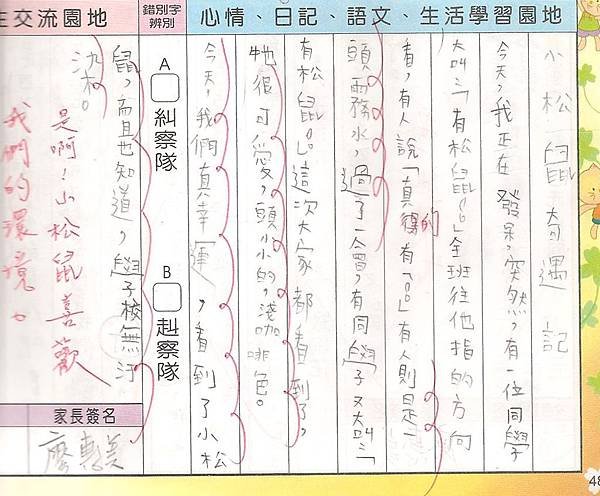 心情、日記、語文、生活學習園地
小松鼠奇遇記
今天,我正在發呆,突然,有一位同學
大叫:「有松鼠!」全班往他指的方向
看,有人說「真得的有!」有人則是一
頭霧水,過了一會,有同學又大叫:「
有松鼠!」這次大家都看到了,
牠很可愛,頭小小的,淺咖啡色。
今天,我們真幸運,看到了小松
錯別字辨別
A □ 糾察隊
B □ 赳察隊
生交流園地
鼠,而且也知道,學校無汙
染。
是啊!小松鼠喜歡
我們的環境ㄛ
家長簽名
48